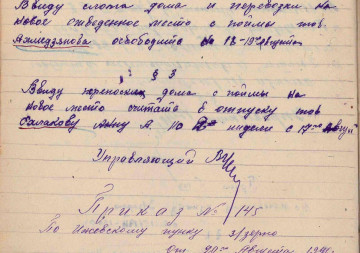 Ввиду слома дома и перевозки на
новое отведенное место с поймы тов
Ахмедзянова освободить на 18-19го августа
§ 3
Ввиду переноски дома с поймы на
новое место считать в отпуску тов
Анну А. на недели с 17го Август
Управляющий
Приказ № 145
По Ижевскому пункту З/зерно
от 20го Августа 194